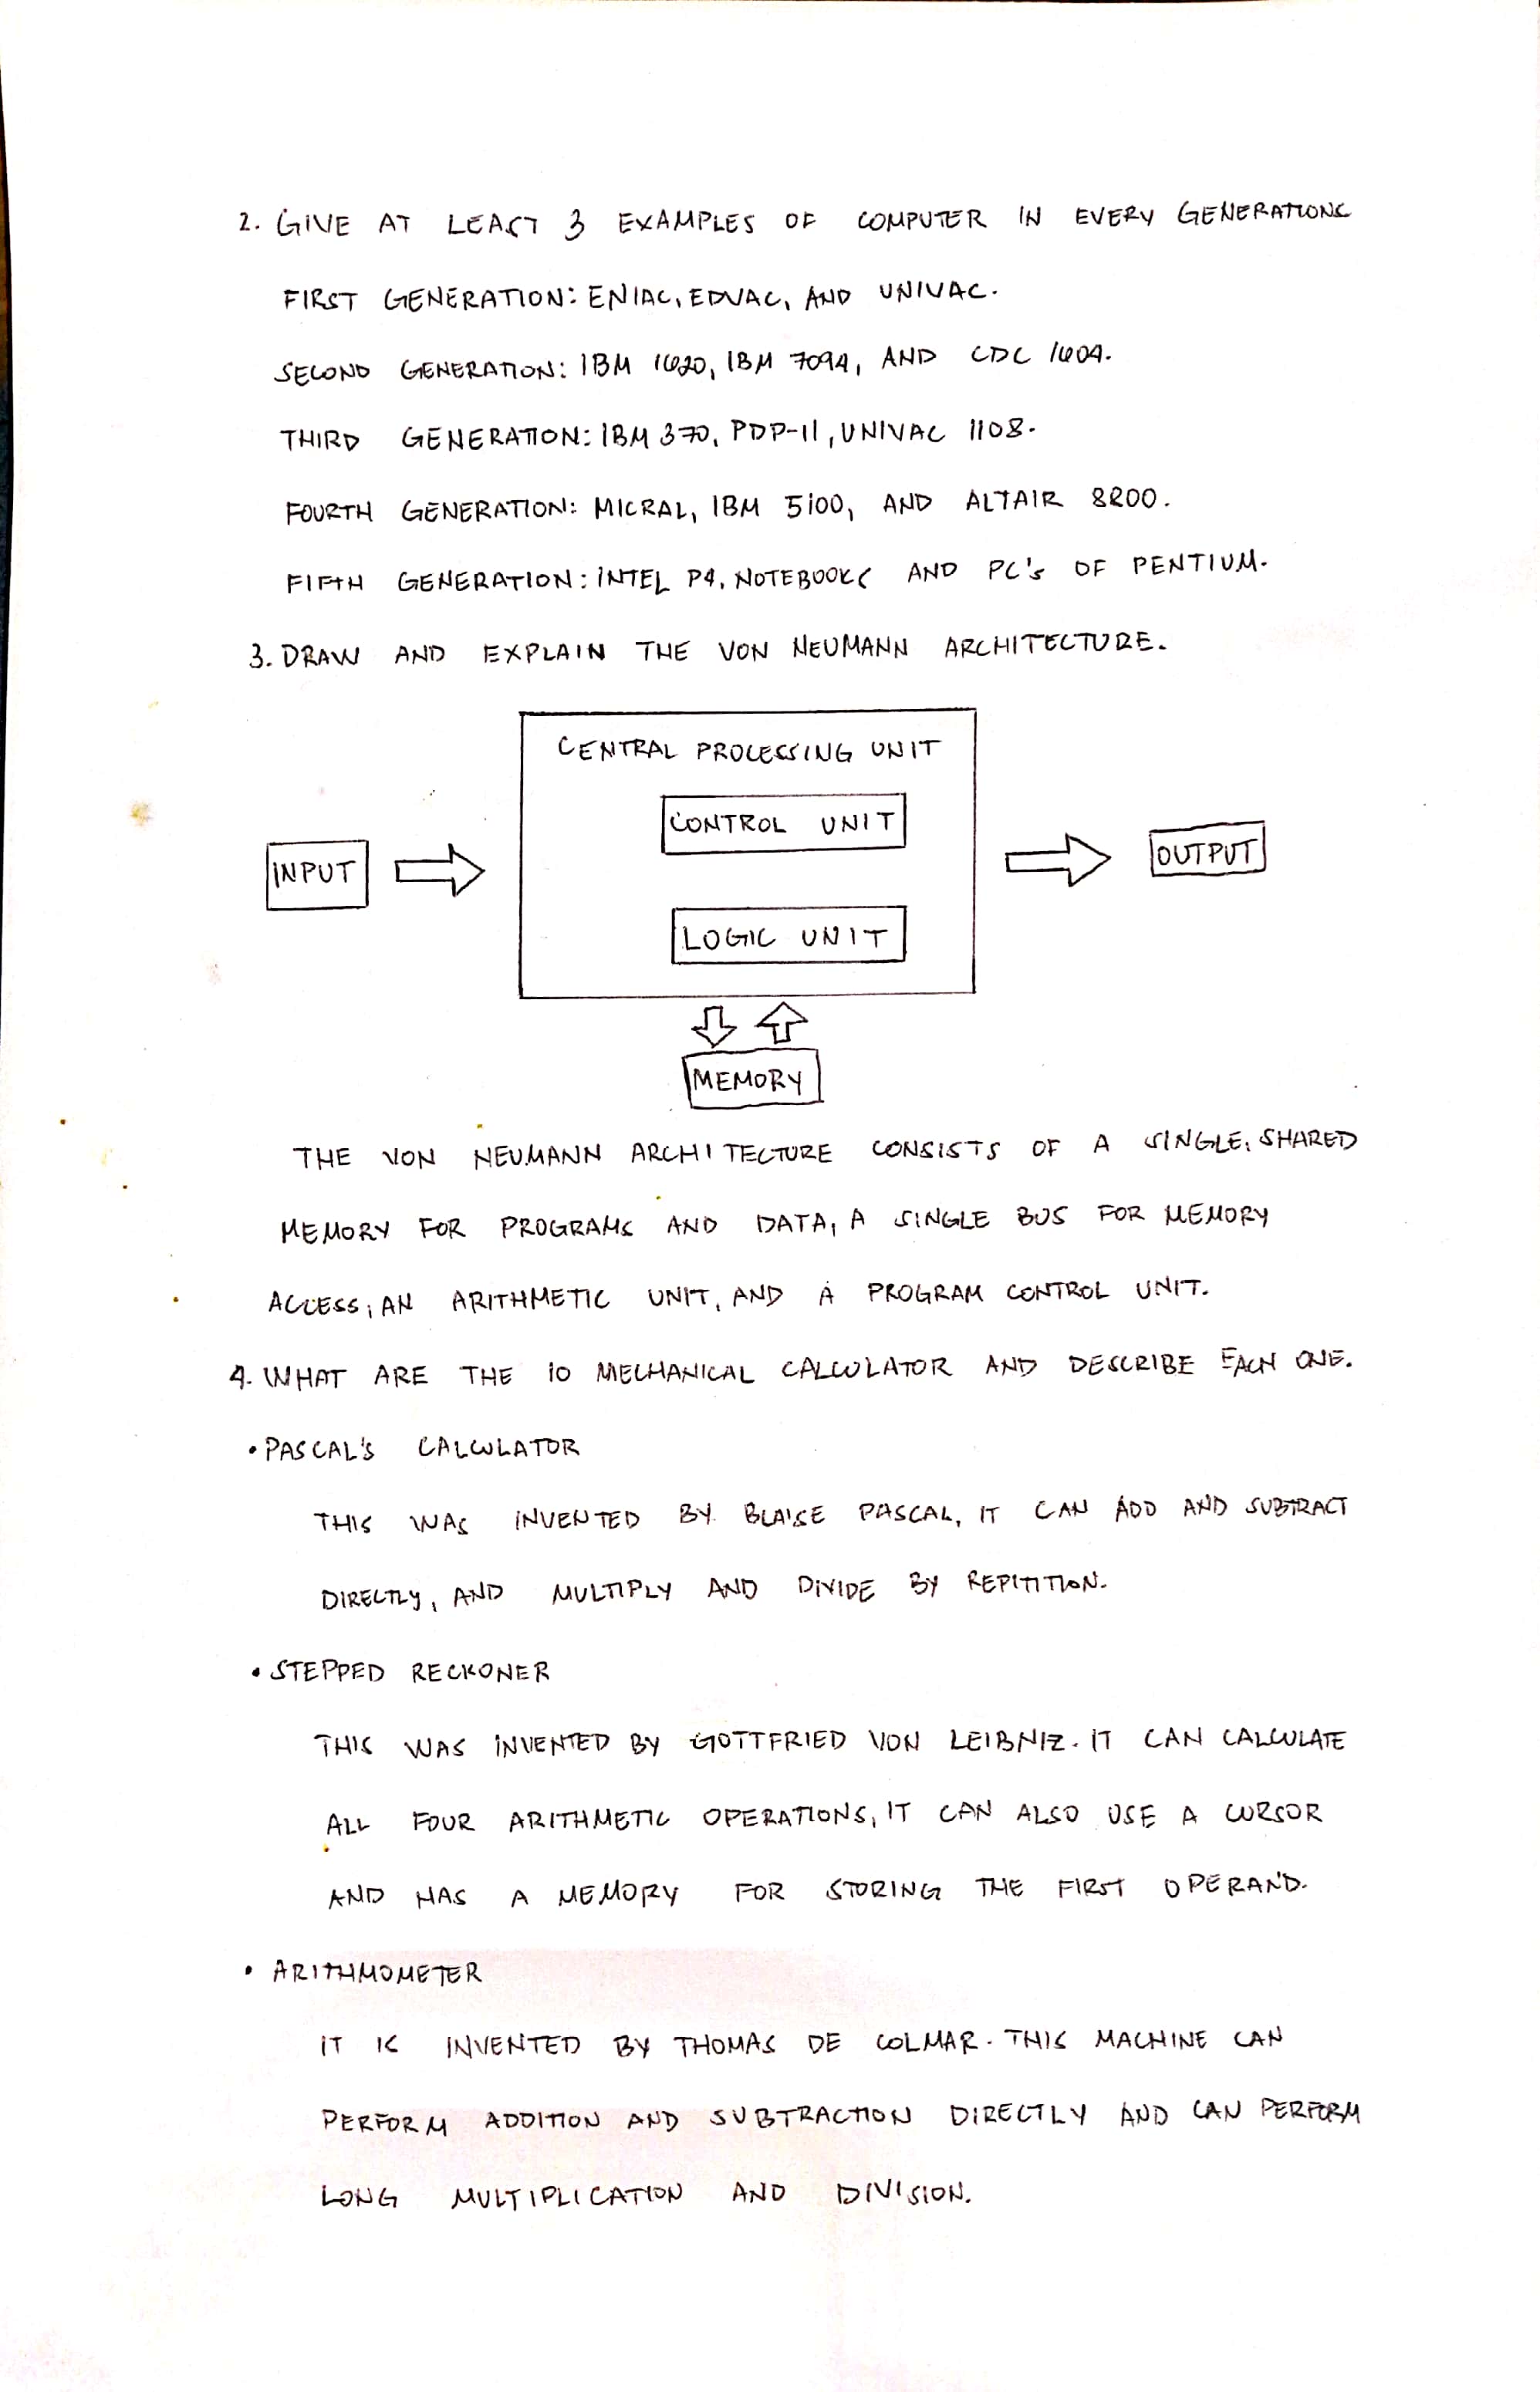 2. GIVE AT LEAST 3 EXAMPLES OF COMPUTER IN EVERY GENERATIONS
FIRST GENERATION: ENIAC, EDVAC, AND UNIVAC.
SECOND GENERATION: IBM 1620, IBM 7094, AND CDC 1604.
THIRD GENERATION: IBM 370, PDP-11, UNIVAC 1108.
FOURTH GENERATION: MICRAL, IBM 5100, AND ALTAIR 8200.
FIFTH GENERATION: INTEL P4, NOTEBOOKS AND PC'S OF PENTIUM.
3. DRAW AND EXPLAIN THE VON NEUMANN ARCHITECTURE.
CENTRAL PROCESSING UNIT
CONTROL UNIT
INPUT
OUTPUT
LOGIC UNIT
MEMORY
THE VON NEUMANN ARCHITECTURE CONSISTS OF A SINGLE, SHARED
MEMORY FOR PROGRAMS AND DATA, A SINGLE BUS FOR MEMORY
ACCESS, AN ARITHMETIC UNIT, AND A PROGRAM CONTROL UNIT.
4. WHAT ARE THE 10 MECHANICAL CALCULATOR AND DESCRIBE EACH ONE.
• PASCAL'S CALCULATOR
THIS WAS INVENTED BY BLAISE PASCAL, IT CAN ADD AND SUBTRACT
DIRECTLY, AND MULTIPLY AND DIVIDE BY REPITITION.
• STEPPED RECKONER
THIS WAS INVENTED BY GOTTFRIED VON LEIBNIZ. IT CAN CALCULATE
ALL FOUR ARITHMETIC OPERATIONS, IT CAN ALSO USE A CURSOR
AND HAS A MEMORY FOR STORING THE FIRST OPERAND.
• ARITHMOMETER
IT IS INVENTED BY THOMAS DE COLMAR. THIS MACHINE CAN
PERFORM ADDITION AND SUBTRACTION DIRECTLY AND CAN PERFORM
LONG MULTIPLICATION AND DIVISION.